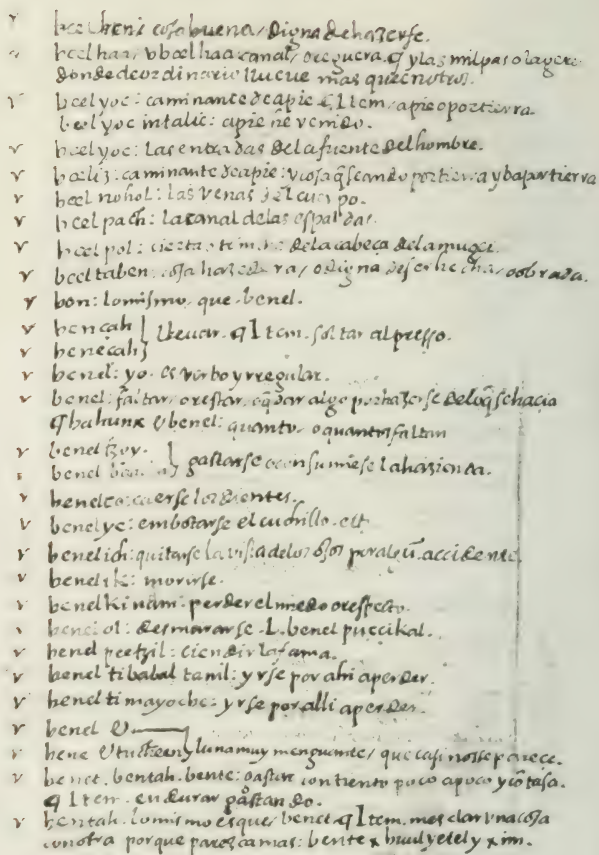 beelbeni cosa buena, digna de hazerse.
beel haa, v boel haa: canal, o reguera. ¶ y las milpas o lugares
donde de ordinario llueue mas que en otros.
beel yoc: caminante de a pie. ¶ Item, a pie o por tierra.
beel yoc in talic: a pie he venido.
beel yoc: las entradas de la fuente del hombre.
beeliz: caminante de a pie: viejo q̃ se ando por tierra y ba por tierra
beel nohol: las venas del cuerpo.
beel pach: la canal de las espaldas.
beel pol: de la cabeça de la muger.
beel taben: cosa hazedera, o digna de ser hecha, o obrada.
bon: lo mismo, que benel.
bençah } lleuar. ¶ Item. soltar al presso.
beneçah }
benel: yr. es verbo yrregular.
benel: faltar, o restar, o q̃dar algo por hazerse de lo q̃ se hacia
¶ bahunx v benel: quanto, o quantos faltan
benel tzoy. } gastarse o consumirse la hazienda.
benel
benel co: caerse los dientes.
benel ye: embotarse el cuchillo. ett.
benel ich: quitarse la vista de los ojos por algũ accidente.
benel ik: morirse.
benel kinam: perder el miedo o respeto.
benel ol: desmayarse. L. benel puccikal.
benel peetzil: cundir la fama.
benel ti babal tanil: yrse por ahi a perder.
benel ti mayoche: yrse por alli a perder.
benel v
bene v tucteen } luna muy menguante, que casi no se parece.
benet. bentah. bente: gastar con tiento poco a poco y cõ tasa.
¶ Item. endurar gastando.
bentah. lo mismo es que, benet ¶ Item. mesclar vna cosa
con otra porque parescа mas: bente x buul yetel y xim.